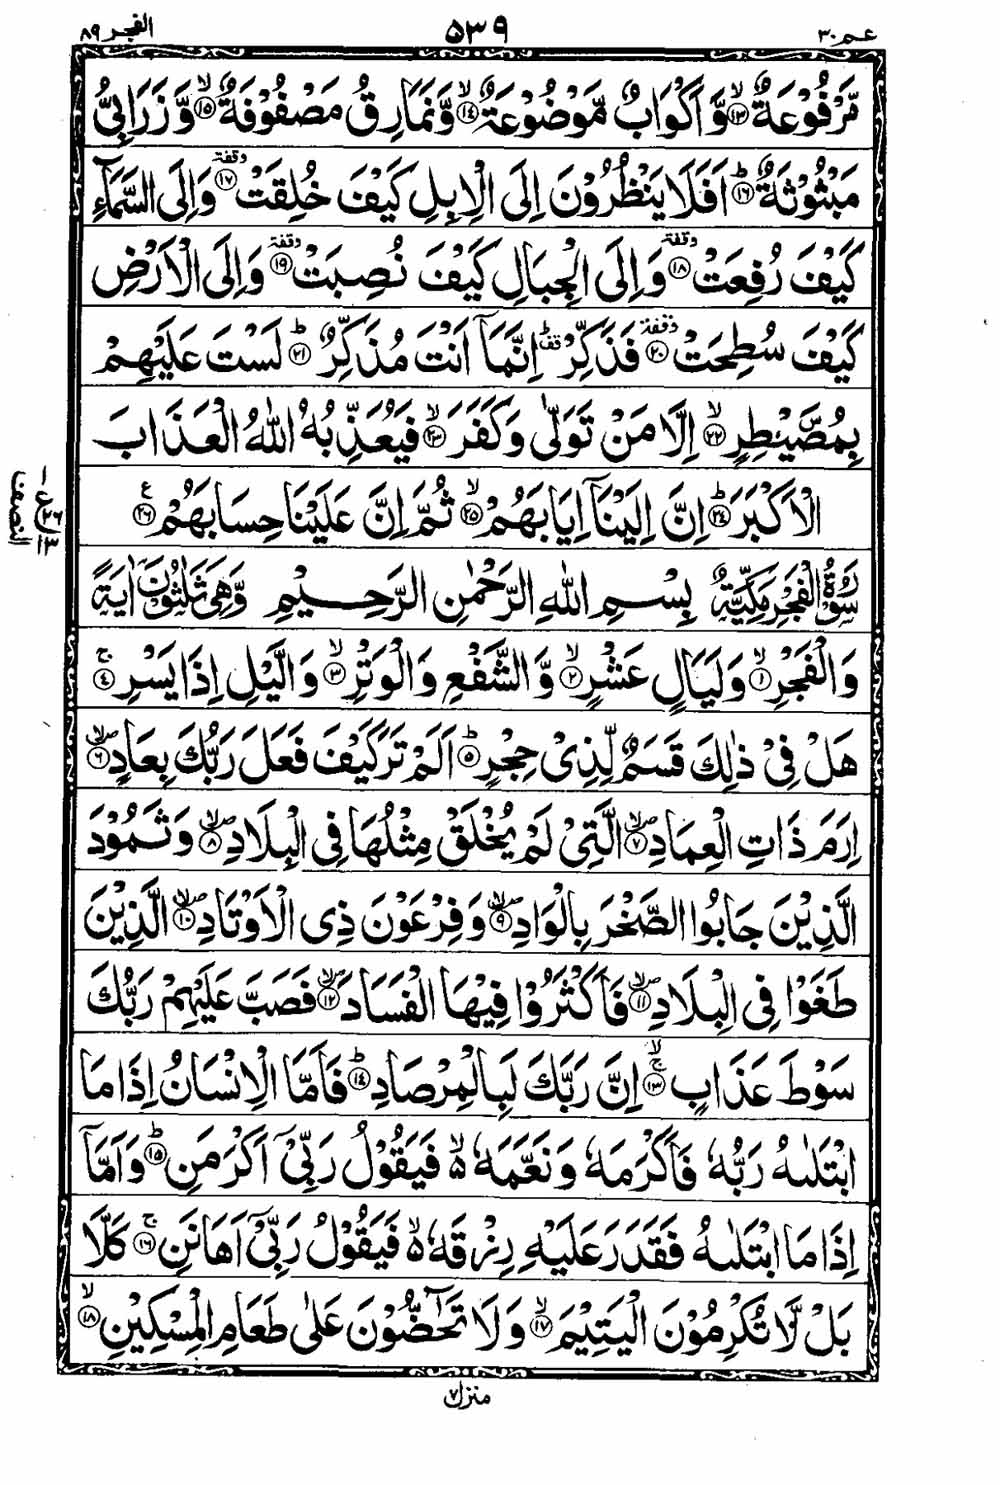 عم ٣٠ ٥٣٩ الفجر ٨٩
مَّرْفُوْعَةٌ ﴿١٣﴾ۙ وَّ اَكْوَابٌ مَّوْضُوْعَةٌ ﴿١٤﴾ۙ وَّنَمَارِقُ مَصْفُوْفَةٌ ﴿١٥﴾ۙ وَّ زَرَابِیُّ
مَبْثُوْثَةٌ ﴿١٦﴾ؕ اَفَلَا یَنْظُرُوْنَ اِلَی الْاِبِلِ كَیْفَ خُلِقَتْ ﴿١٧﴾ وقفة وَاِلَی السَّمَآءِ
كَیْفَ رُفِعَتْ ﴿١٨﴾ وقفة وَاِلَی الْجِبَالِ كَیْفَ نُصِبَتْ ﴿١٩﴾ وقفة وَاِلَی الْاَرْضِ
كَیْفَ سُطِحَتْ ﴿٢٠﴾ وقفة فَذَكِّرْ قف اِنَّمَاۤ اَنْتَ مُذَكِّرٌ ﴿٢١﴾ؕ لَسْتَ عَلَیْهِمْ
بِمُصَۜیْطِرٍ ﴿٢٢﴾ۙ اِلَّا مَنْ تَوَلّٰی وَكَفَرَ ﴿٢٣﴾ۙ فَیُعَذِّبُهُ اللّٰهُ الْعَذَابَ
الْاَكْبَرَ ﴿٢٤﴾ؕ اِنَّ اِلَیْنَاۤ اِیَابَهُمْ ﴿٢٥﴾ۙ ثُمَّ اِنَّ عَلَیْنَا حِسَابَهُمْ ﴿٢٦﴾ ع
النصف
سُوْرَةُ الْفَجْرِ مَكِّیَّةٌ بِسْمِ اللّٰهِ الرَّحْمٰنِ الرَّحِیْمِ وَّهِیَ ثَلٰثُوْنَ اٰیَةً
وَالْفَجْرِ ﴿١﴾ۙ وَلَیَالٍ عَشْرٍ ﴿٢﴾ۙ وَّ الشَّفْعِ وَالْوَتْرِ ﴿٣﴾ۙ وَالَّیْلِ اِذَا یَسْرِ ﴿٤﴾ۚ
هَلْ فِیْ ذٰلِكَ قَسَمٌ لِّذِیْ حِجْرٍ ﴿٥﴾ؕ اَلَمْ تَرَ كَیْفَ فَعَلَ رَبُّكَ بِعَادٍ ﴿٦﴾
اِرَمَ ذَاتِ الْعِمَادِ ﴿٧﴾ الَّتِیْ لَمْ یُخْلَقْ مِثْلُهَا فِی الْبِلَادِ ﴿٨﴾ وَثَمُوْدَ
الَّذِیْنَ جَابُوا الصَّخْرَ بِالْوَادِ ﴿٩﴾ وَفِرْعَوْنَ ذِی الْاَوْتَادِ ﴿١٠﴾ الَّذِیْنَ
طَغَوْا فِی الْبِلَادِ ﴿١١﴾ فَاَكْثَرُوْا فِیْهَا الْفَسَادَ ﴿١٢﴾ فَصَبَّ عَلَیْهِمْ رَبُّكَ
سَوْطَ عَذَابٍ ﴿١٣﴾ اِنَّ رَبَّكَ لَبِالْمِرْصَادِ ﴿١٤﴾ؕ فَاَمَّا الْاِنْسَانُ اِذَا مَا
ابْتَلٰىهُ رَبُّهٗ فَاَكْرَمَهٗ وَنَعَّمَهٗ ۙ۬ فَیَقُوْلُ رَبِّیْۤ اَكْرَمَنِ ﴿١٥﴾ؕ وَاَمَّاۤ
اِذَا مَا ابْتَلٰىهُ فَقَدَرَ عَلَیْهِ رِزْقَهٗ ۙ۬ فَیَقُوْلُ رَبِّیْۤ اَهَانَنِ ﴿١٦﴾ۚ كَلَّا
بَلْ لَّا تُكْرِمُوْنَ الْیَتِیْمَ ﴿١٧﴾ۙ وَلَا تَحٰٓضُّوْنَ عَلٰی طَعَامِ الْمِسْكِیْنِ ﴿١٨﴾ۙ
منزل ٧